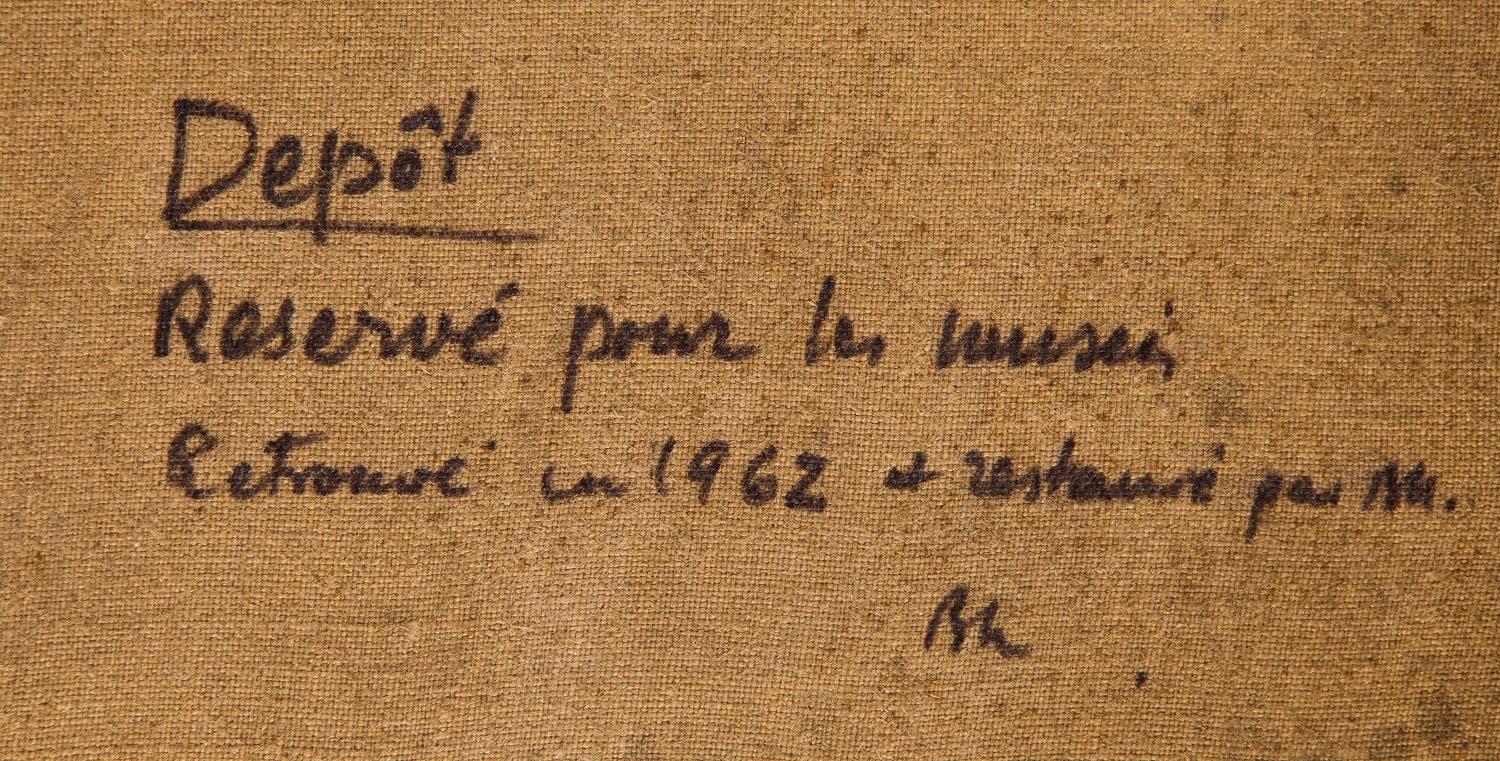 Depôt
Reservé pour les musées
Retrouvé en 1962 et restauré par